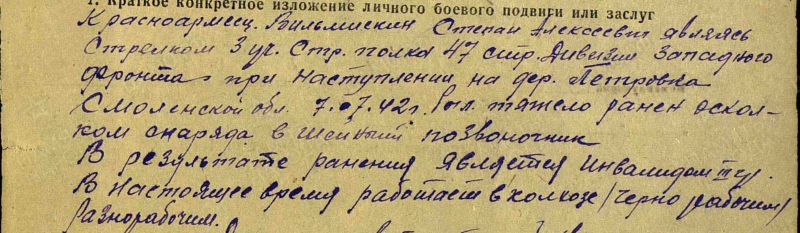 1. Краткое конкретное изложение личного боевого подвига или заслуг
Красноармеец Вильмискин Степан Алексеевич являясь
Стрелком 3 уч. Стр. полка 47 стр. Дивизии Западного
фронта при наступлении на дер. Петровка
Смоленской обл. 7.07.42г. был тяжело ранен оскол-
ком снаряда в шейный позвоночник
В результате ранения является инвалидом III гр.
В настоящее время работает в колхозе /черно рабочим/
разнорабочим.